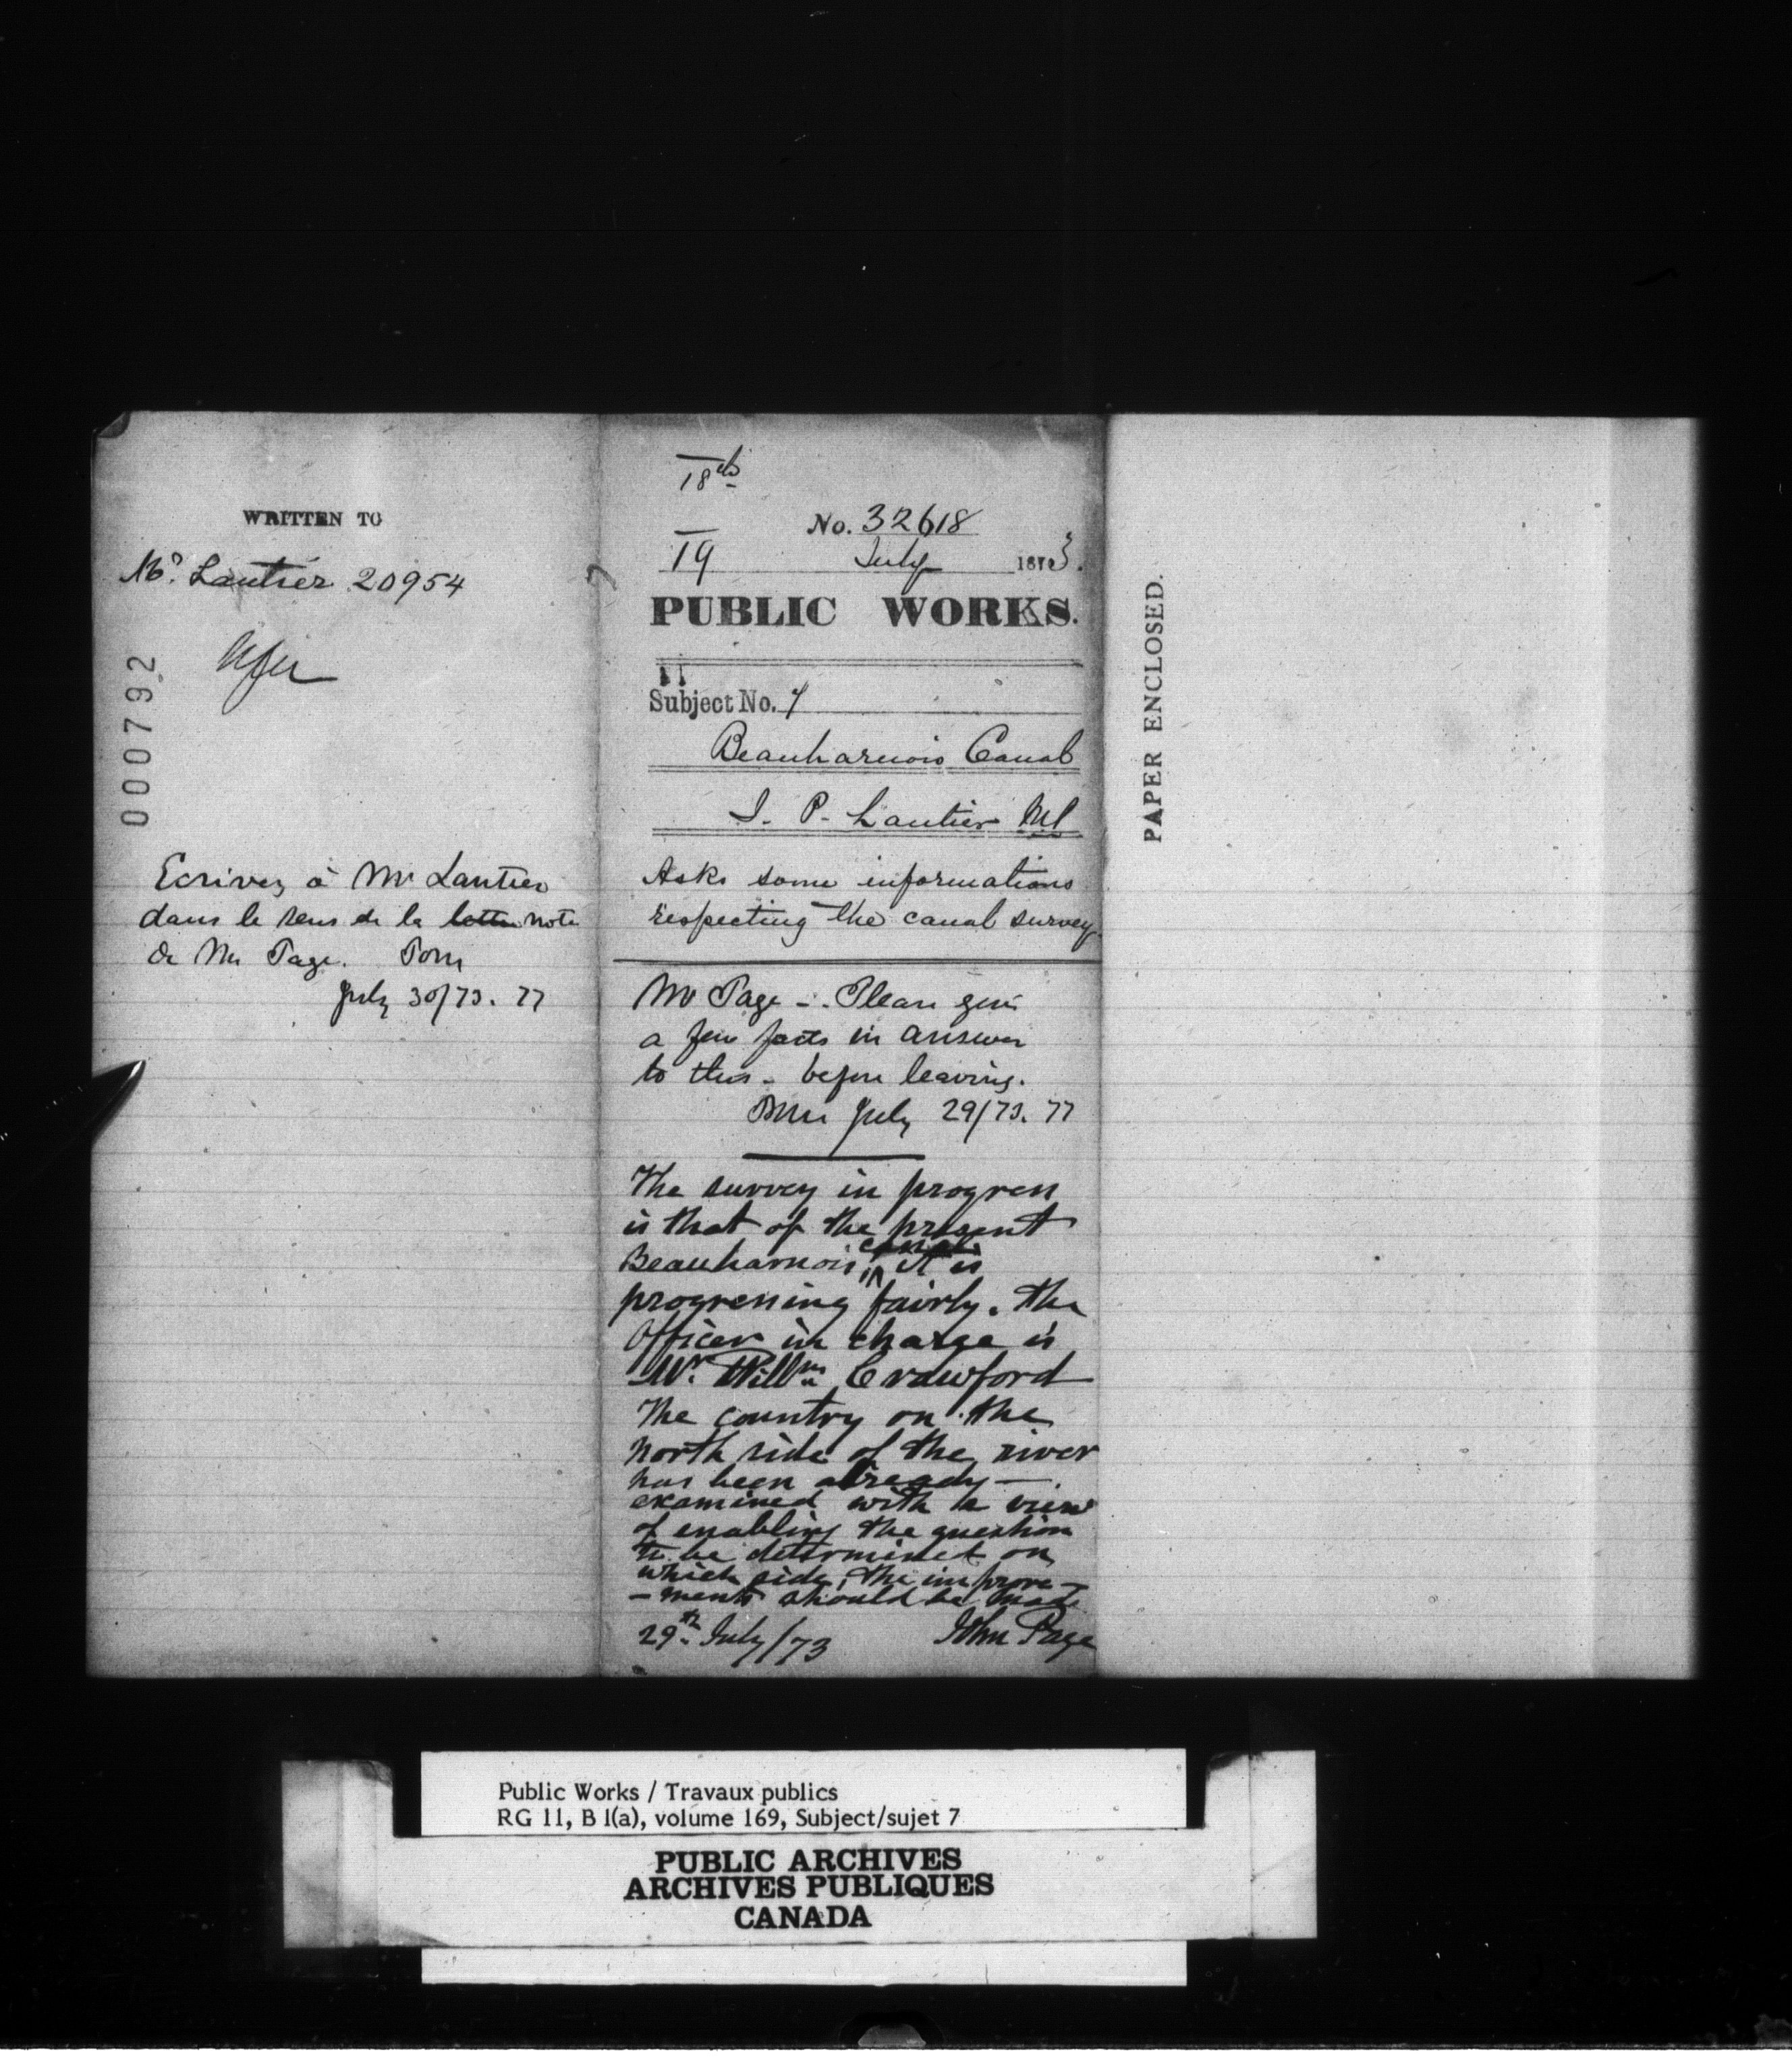 WRITTEN TO
Mr. Lantier 20954
000792
Ecrivez à Mr Lantier
dans le sens de la lettre note
de Mr Page.
July 30/73.
18th
No. 32618
19 July 1873.
PUBLIC WORKS.
11
Subject No. 7
Beauharnois Canal
I. P. Lantier MP
Asks some informations
respecting the canal survey.
Mr Page - Please give
a few facts in answer
to this - before leaving.
July 29/73.
The survey in progress
is that of the present
Beauharnois canal it is
progressing fairly. The
Officer in charge is
Mr. Willm Crawford
The country on the
north side of the river
has been already —
examined with a view
of enabling the question
to be determined on
which side, the improve-
-ments should be made
29th July/73 John Page
PAPER ENCLOSED.
Public Works / Travaux publics
RG 11, B 1(a), volume 169, Subject/sujet 7
PUBLIC ARCHIVES
ARCHIVES PUBLIQUES
CANADA